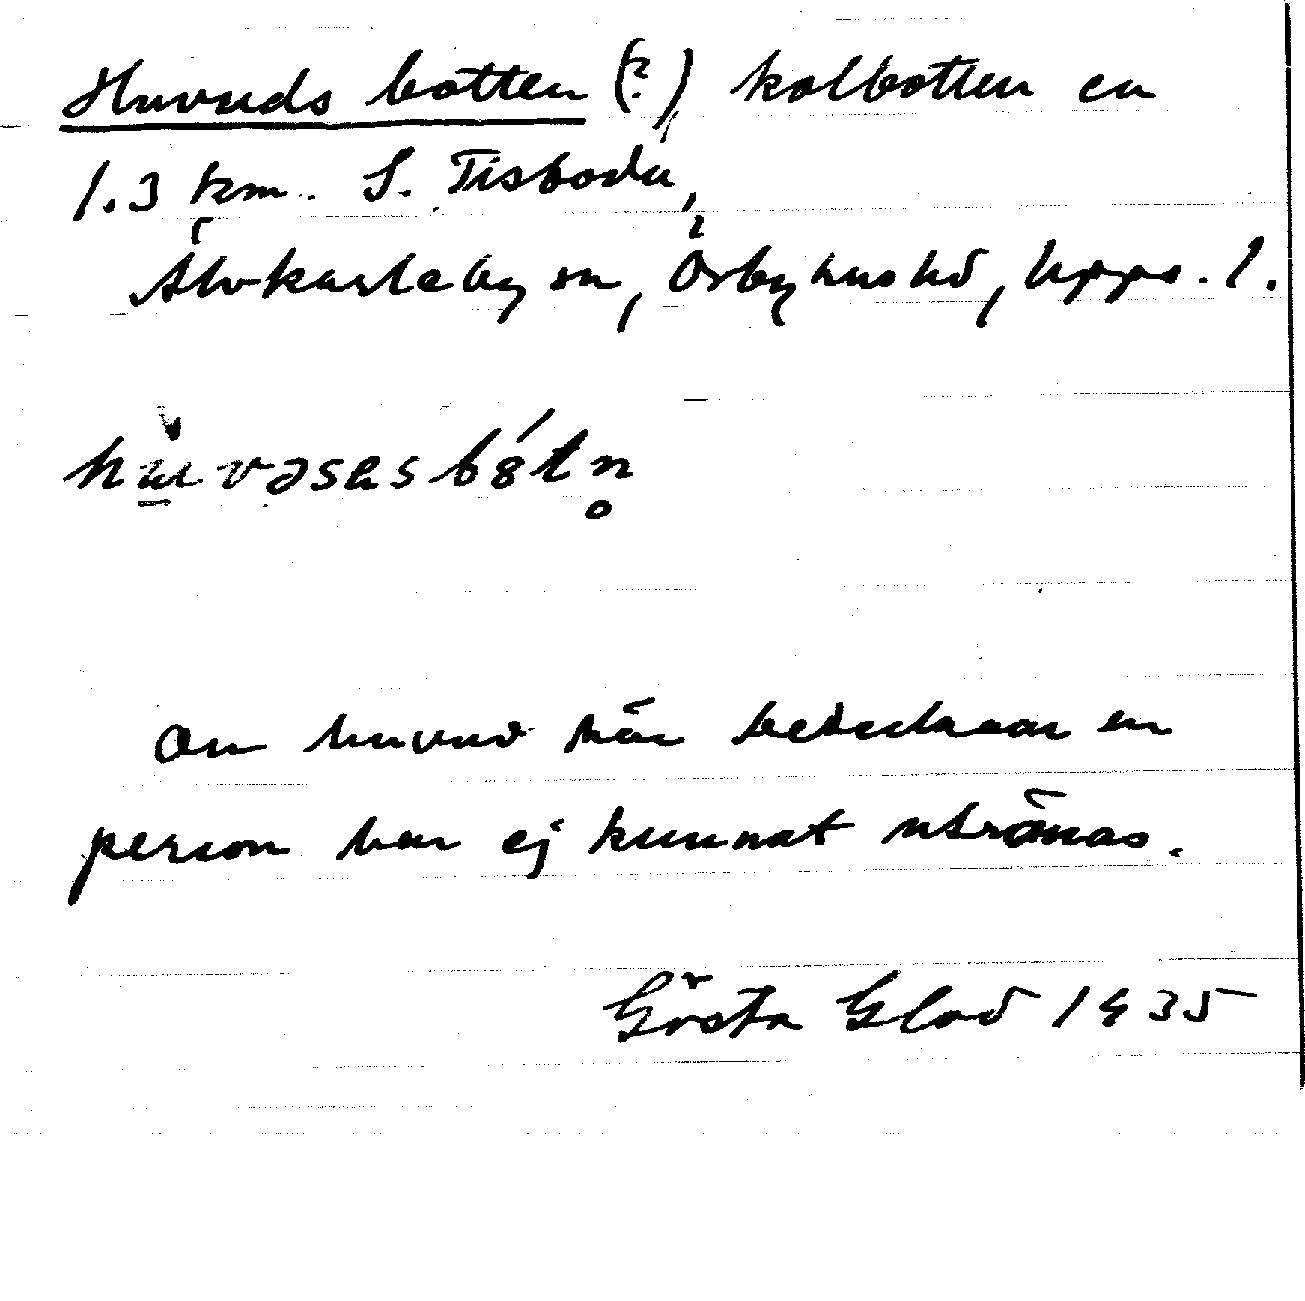 Huvuds botten (?) kolbotten ca
1.3 km. S. Tisboda,
Älvkarleby sn, Örbyhus hd, Upps. l.
huvəsesbȯtn̥
Om huvud här betecknar en
person har ej kunnat utrönas.
Gösta Glad 1935